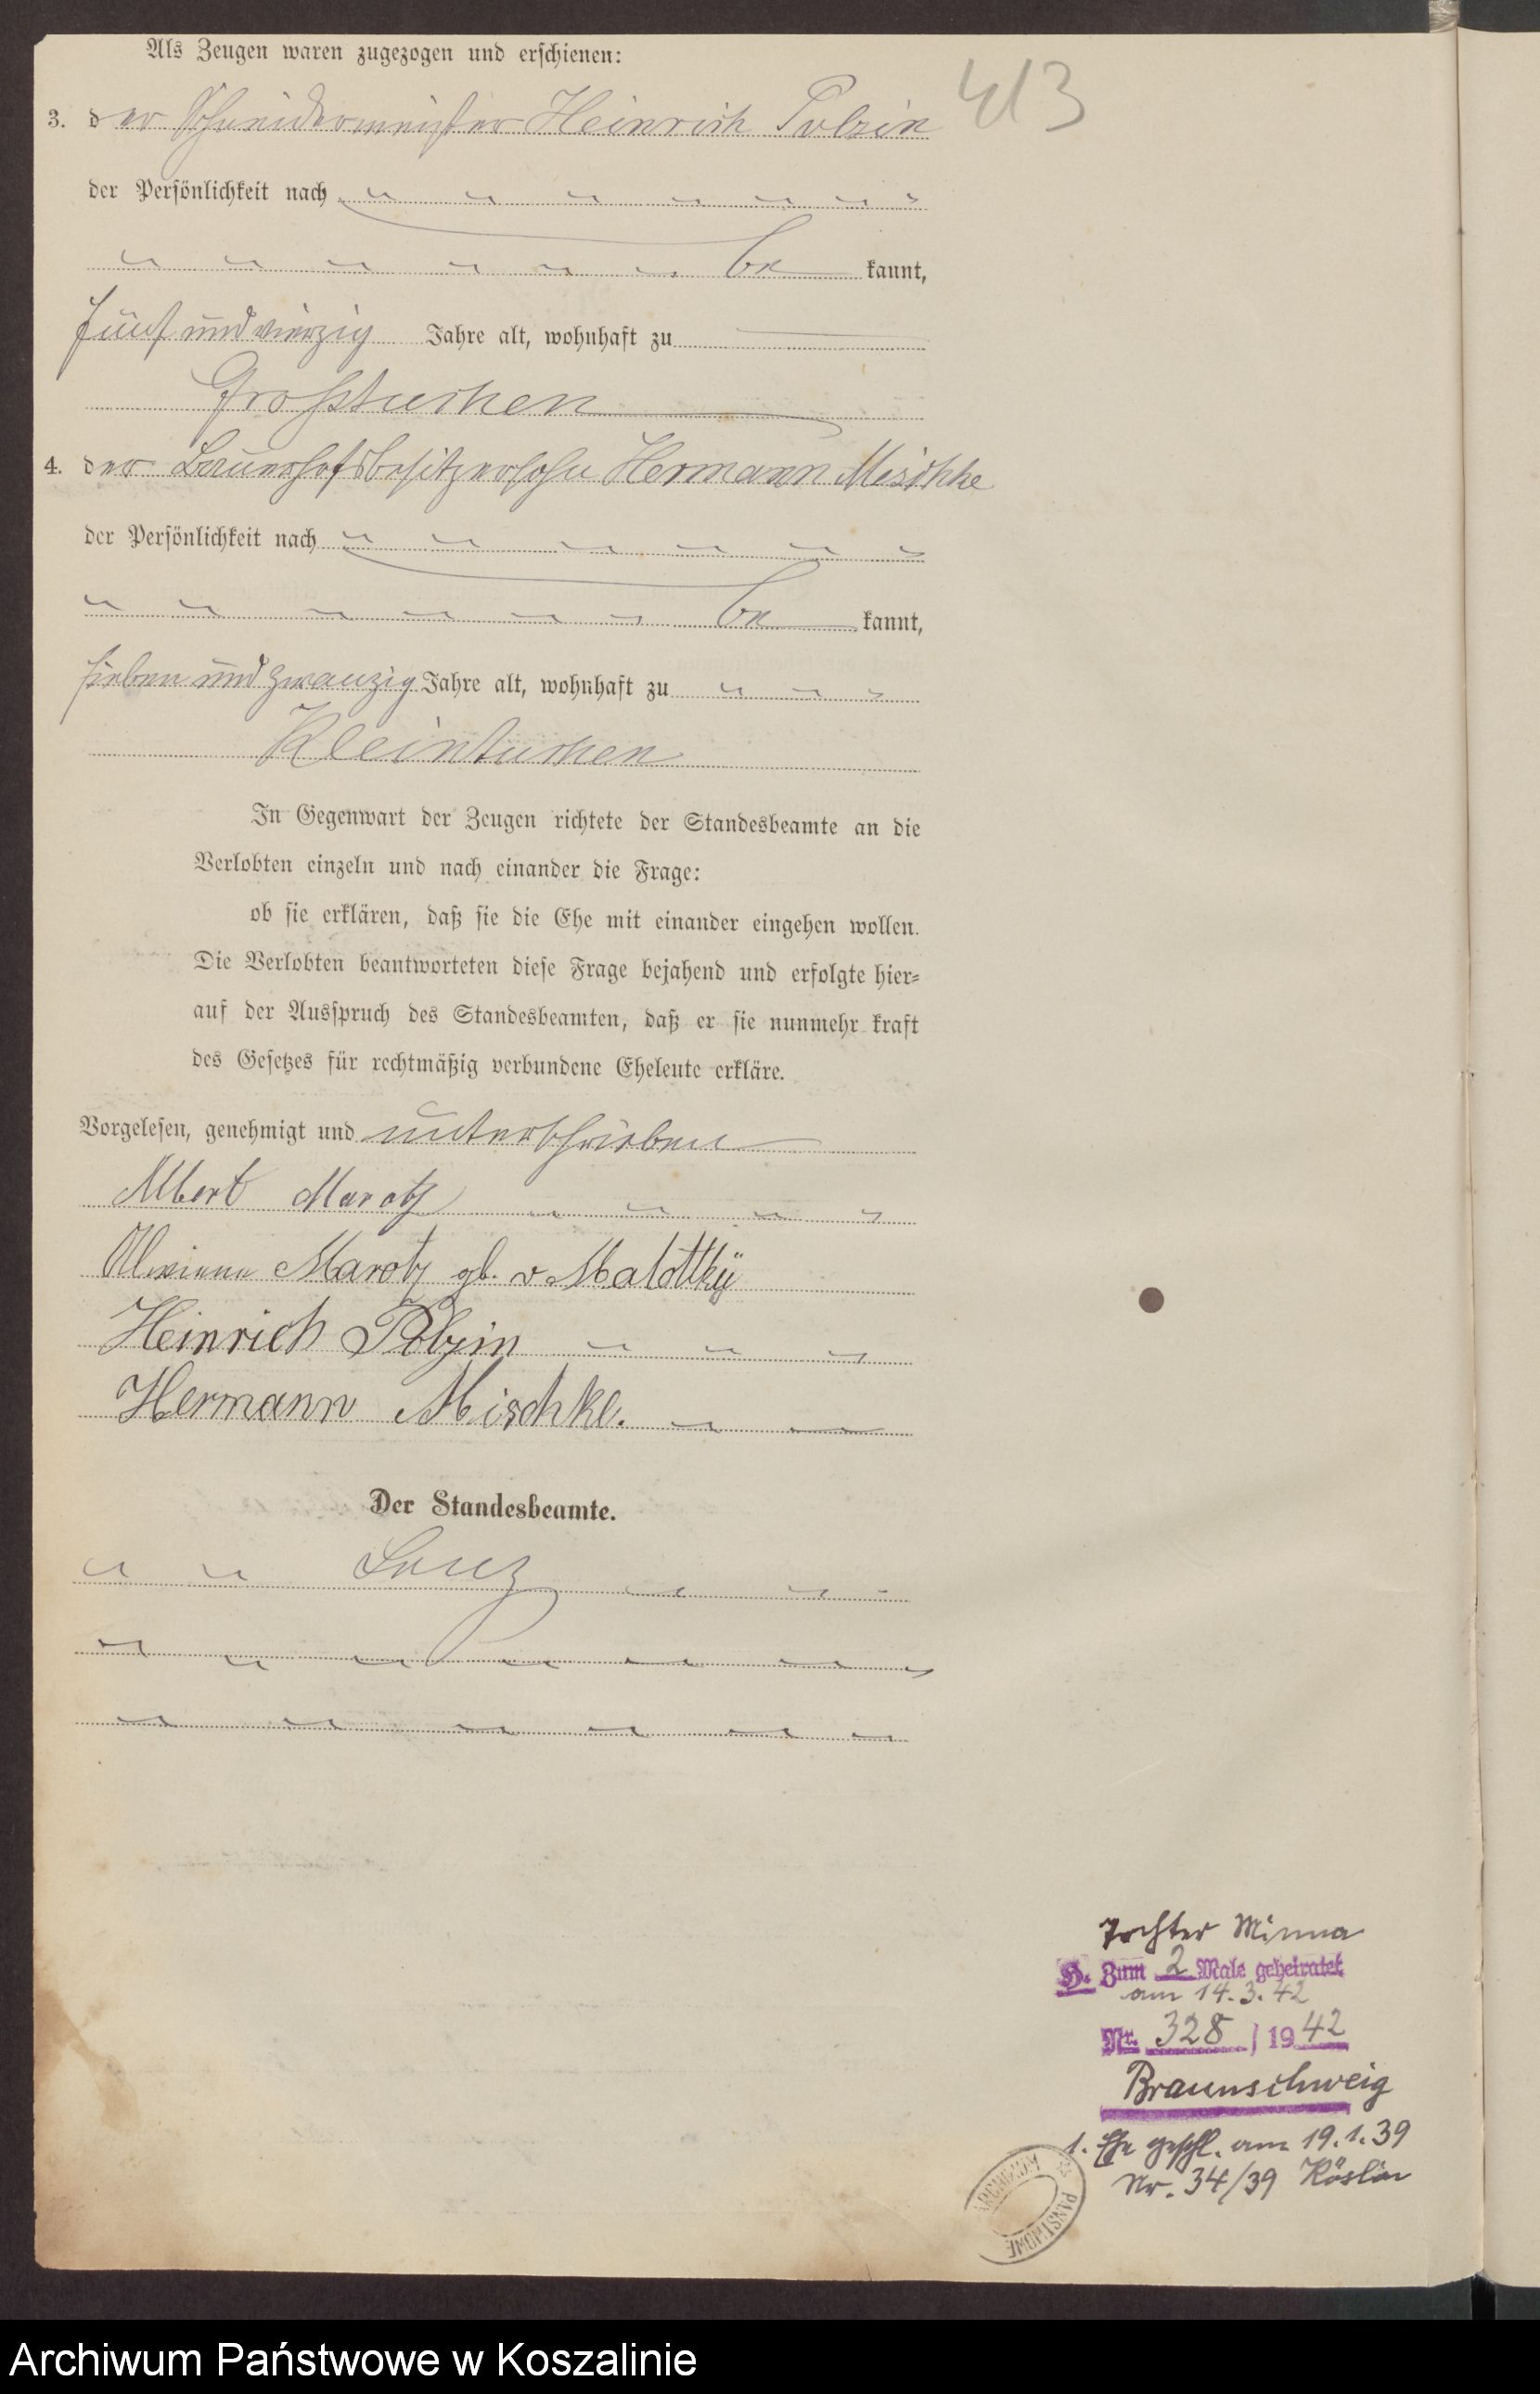 Als Zeugen waren zugezogen und erschienen:
413
3. der Schneidermeister Heinrich Polzin
der Persönlichkeit nach
be kannt,
fünf und vierzig Jahre alt, wohnhaft zu
Großtuchen
4. der Bauerhofsbesitzersohn Hermann Mischke
der Persönlichkeit nach
be kannt,
sieben und zwanzig Jahre alt, wohnhaft zu
Kleintuchen
In Gegenwart der Zeugen richtete der Standesbeamte an die
Verlobten einzeln und nach einander die Frage:
ob sie erklären, daß sie die Ehe mit einander eingehen wollen.
Die Verlobten beantworteten diese Frage bejahend und erfolgte hier=
auf der Ausspruch des Standesbeamten, daß er sie nunmehr kraft
des Gesetzes für rechtmäßig verbundene Eheleute erkläre.
Vorgelesen, genehmigt und unterschrieben
Albert Marotz
Marotz gb. v Malottkÿ
Heinrich Polzin
Hermann Mischke.
Der Standesbeamte.
Lenz
Tochter Minna
H. Zum 2 Male geheiratet
am 14.3.42
Nr. 328 / 1942
Braunschweig
1. Ehe geschl. am 19.1.39
Nr. 34/39 Köslin
ARCHIWUM PAŃSTWOWE
Archiwum Państwowe w Koszalinie